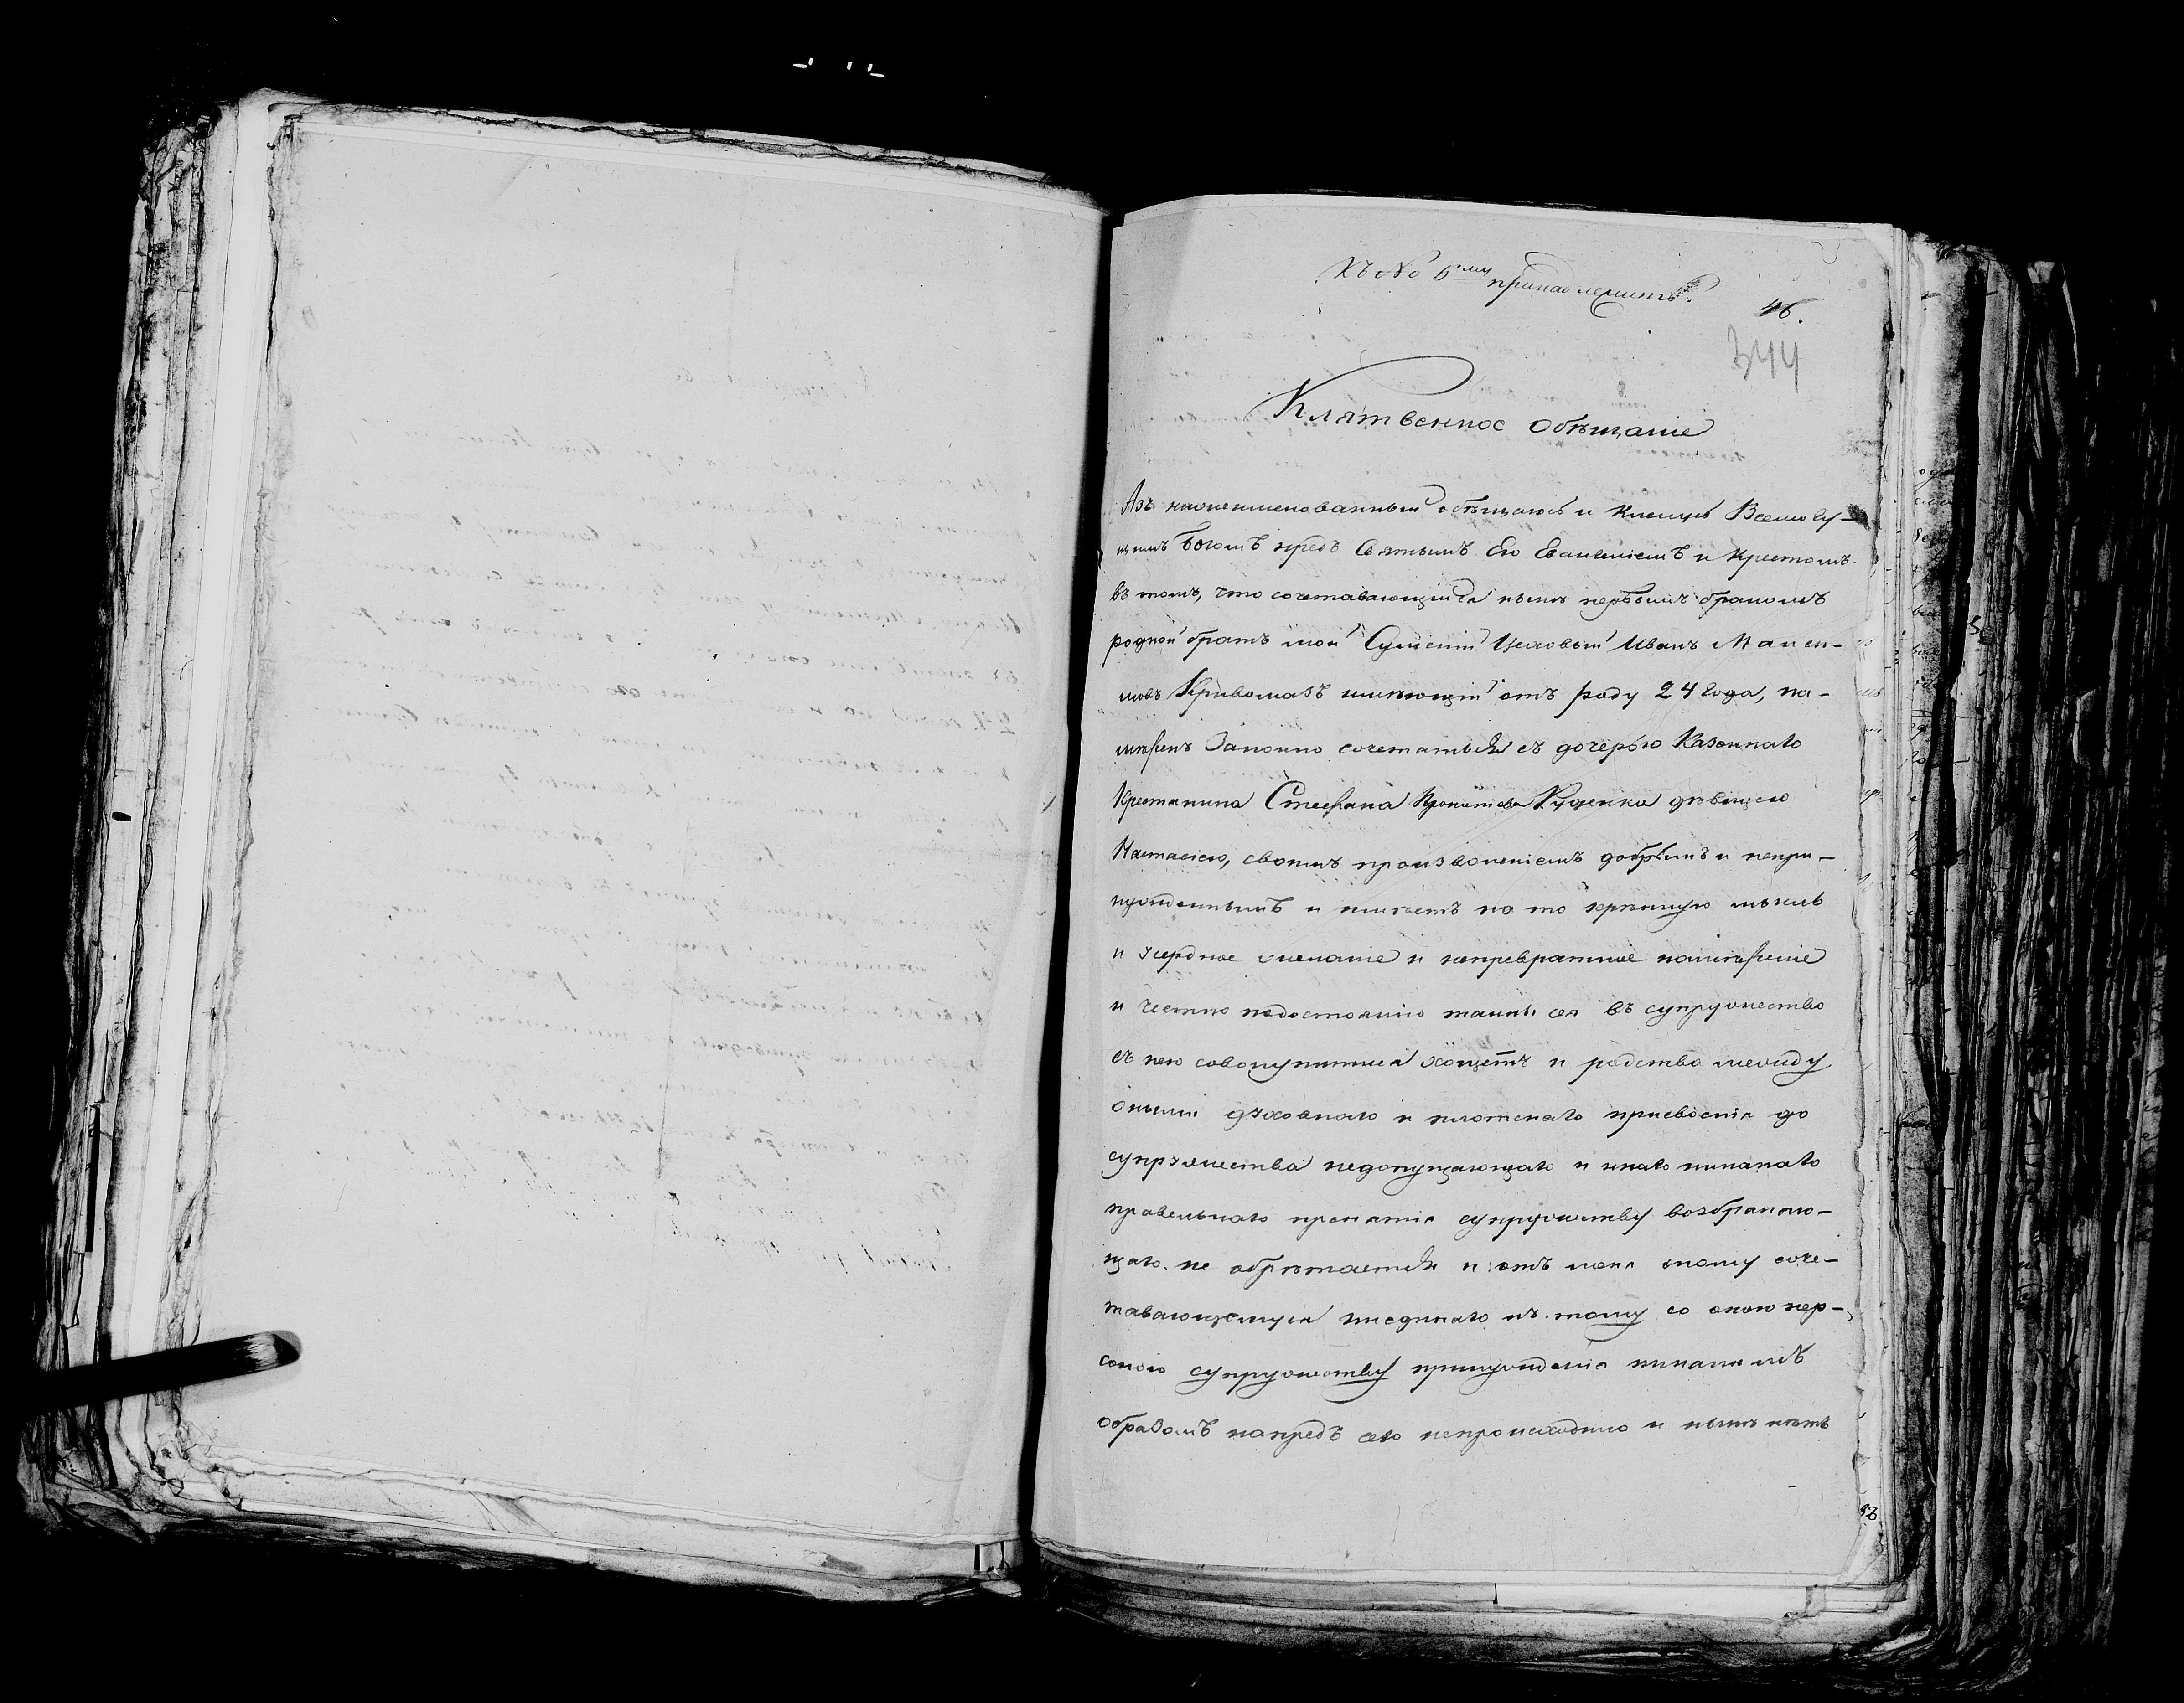 Къ № 5му принадлежитъ.
46.
344
Клятвенное обѣщаніе
Азъ нижеименованный обѣщаюсь и кленусь Всемогу-
щимъ Богомъ предъ Святымъ Его Евангеліемъ и Крестомъ
въ томъ, что сочетавающійся нынѣ первымъ бракомъ
родной братъ мой Сумскій Цеховый Иванъ Макси-
мовъ Кривомазъ имѣющій отъ роду 24 года, на-
мѣренъ Законно сочетаться съ дочерью Казеннаго
Крестянина Стефана Руденка дѣвицею
Настасіею, своимъ произволеніемъ добрымъ и непри-
нужденнымъ и имѣетъ на то крѣпкую мысль
и усердное желаніе и непревратное намѣреніе
и честно подостоянію тайны сея въ супружество
съ нею совокупитися хощетъ и родства между
оными духовнаго и плотскаго присвоенія до
супружества недопущающаго и инаго никакаго
правельнаго препятія супружеству возбраняю-
щаго не обрѣтается и отъ меня оному соче-
тавающемуся къ тому со оною пер-
соною супружеству принужденія никакимъ
образомъ напредъ сего непроисходило и нынѣ нѣтъ